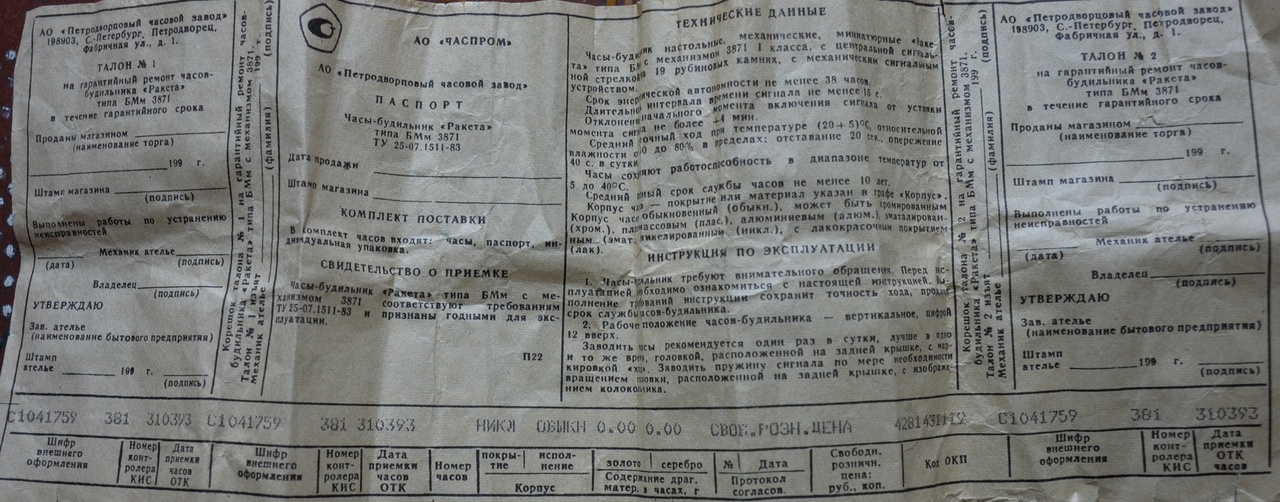 АО «Петродворцовый часовой завод»
198903, С.-Петербург, Петродворец,
Фабричная ул., д. 1.
ТАЛОН № 1
на гарантийный ремонт часов-
будильника «Ракета»
типа БМм 3871
в течение гарантийного срока
Проданы магазином
(наименование торга)
199 г.
Штамп магазина
(подпись)
Выполнены работы по устранению
неисправностей
Механик ателье
(дата) (подпись)
Владелец
(подпись)
УТВЕРЖДАЮ
Зав. ателье
(наименование бытового предприятия)
Штамп
ателье 199 г.
(подпись)
Корешок талона № 1 на гарантийный ремонт часов-
будильника «Ракета» типа БМм с механизмом 3871.
Талон № 1 изъят 199 г.
Механик ателье (фамилия) (подпись)
АО «ЧАСПРОМ»
АО «Петродворцовый часовой завод»
ПАСПОРТ
Часы-будильник «Ракета»
типа БМм 3871
ТУ 25-07.1511-83
Дата продажи
Штамп магазина
КОМПЛЕКТ ПОСТАВКИ
В комплект часов входят: часы, паспорт, ин-
дивидуальная упаковка.
СВИДЕТЕЛЬСТВО О ПРИЕМКЕ
Часы-будильник «Ракета» типа БМм с ме-
ханизмом 3871 соответствуют требованиям
ТУ 25-07.1511-83 и признаны годными для экс-
плуатации.
П22
ТЕХНИЧЕСКИЕ ДАННЫЕ
Часы-будильник настольные, механические, миниатюрные «Раке-
та» типа БМм с механизмом 3871 I класса, с центральной сигналь-
ной стрелкой 19 рубиновых камнях, с механическим сигнальным
устройством.
Срок энергической автономности не менее 38 часов.
Длительность интервала времени сигнала не менее 15 с.
Отклонение начального момента включения сигнала от уставки
момента сигнала не более +4 мин.
Средний суточный ход при температуре (20+5)°С, относительной
влажности от 30 до 80% в пределах: отставание 20 сек., опережение
40 с. в сутки.
Часы сохраняют работоспособность в диапазоне температур от
5 до 40°С.
Средний полный срок службы часов не менее 10 лет.
Корпус часов — покрытие или материал указан в графе «Корпус».
Корпус часов обыкновенный (обыкн.), может быть хромированным
(хром.), пластмассовым (плас.), алюминиевым (алюм.), эматалирован-
ным (эмат.), никелированным (никл.), с лакокрасочным покрытием
(лак).
ИНСТРУКЦИЯ ПО ЭКСПЛУАТАЦИИ
1. Часы-будильник требуют внимательного обращения. Перед экс-
плуатацией необходимо ознакомиться с настоящей инструкцией. Вы-
полнение требований инструкции сохранит точность хода, продлит
срок службы часов-будильника.
2. Рабочее положение часов-будильника — вертикальное, цифрой
12 вверх.
Заводить часы рекомендуется один раз в сутки, лучше в одно
и то же время, головкой, расположенной на задней крышке, с мар-
кировкой Заводить пружину сигнала по мере необходимости
вращением головки, расположенной на задней крышке, с изображе-
нием колокольчика.
Корешок талона № 2 на гарантийный ремонт часов-
будильника «Ракета» типа БМм с механизмом 3871.
Талон № 2 изъят 199 г.
Механик ателье (фамилия) (подпись)
АО «Петродворцовый часовой завод»
198903, С.-Петербург, Петродворец,
Фабричная ул., д. 1.
ТАЛОН № 2
на гарантийный ремонт часов-
будильника «Ракета»
типа БМм 3871
в течение гарантийного срока
Проданы магазином
(наименование торга)
199 г.
Штамп магазина
(подпись)
Выполнены работы по устранению
неисправностей
Механик ателье
(дата) (подпись)
Владелец
(подпись)
УТВЕРЖДАЮ
Зав. ателье
(наименование бытового предприятия)
Штамп
ателье 199 г.
(подпись)
С1041759 381 310393 С1041759 381 310393 НИКЛ ОБЫКН 0.00 0.00 СВОБ.РОЗН.ЦЕНА С1041759 381 310393
Шифр внешнего оформления
Номер контролера КИС
Дата приемки часов ОТК
Шифр внешнего оформления
Номер контролера КИС
Дата приемки часов ОТК
Номер часов
покрытие исполнение
Корпус
золото серебро
Содержание драг. матер. в часах, г
№ Дата
Протокол согласов.
Свободн. розничн. цена: руб., коп.
Код ОКП
Шифр внешнего оформления
Номер контролера КИС
Дата приемки часов ОТК